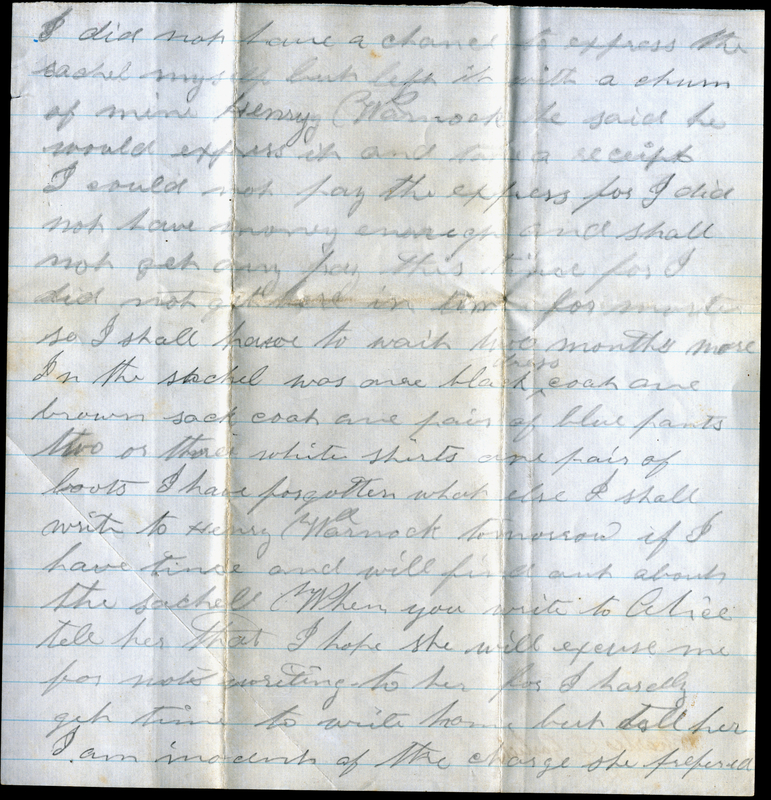 I did not have a chance to express the
sachel myself but left it with a chum
of mine Henry Warnock he said he
would express it and take a receipt
I could not pay the express for I did
not have money enough and shall
not get any pay this time for I
did not get here in time for muster
so I shall have to wait two months more
In the sachel was one black dress coat one
brown sack coat one pair of blue pants
two or three white shirts one pair of
boots I have forgotten what else I shall
write to Henry Warnock tomorrow if I
have time and will find out about
the sachell When you write to Alice
tell her that I hope she will excuse me
for not writing to her for I hardly
get time to write home but tell her
I am inocent of the charge she prefered